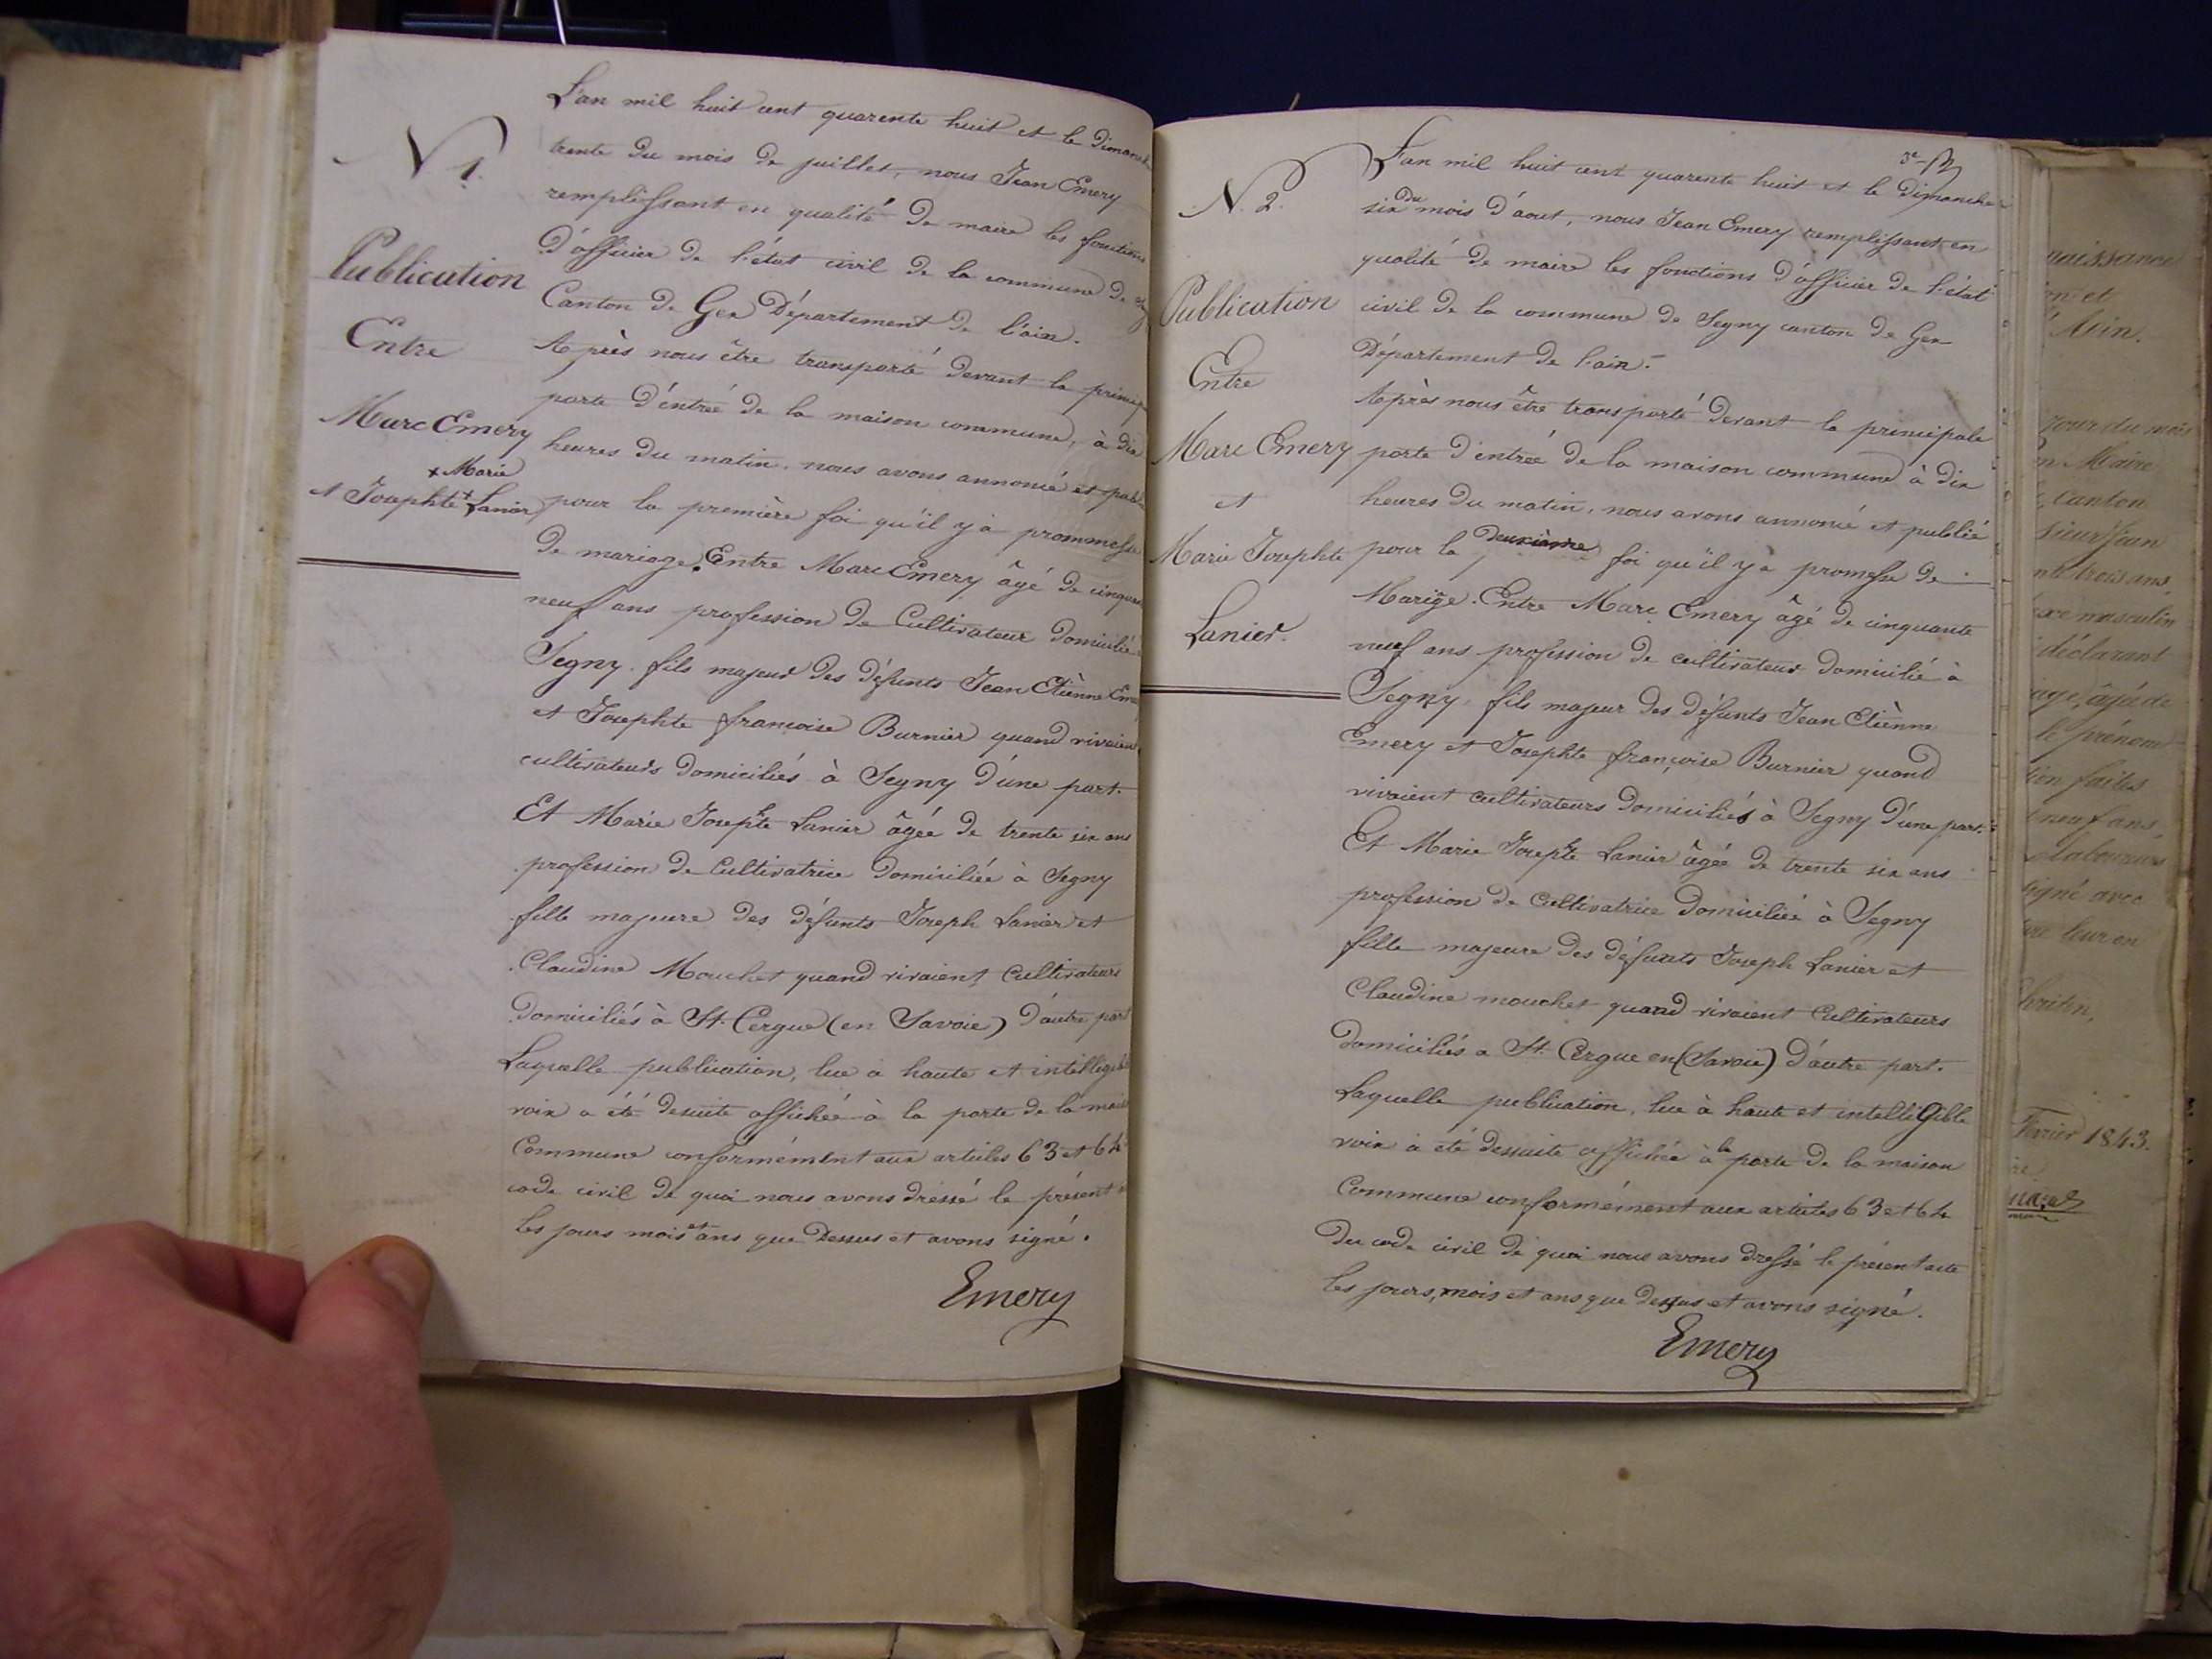 N 1.
Publication
Entre
Marc Emery
+ Marie
et Josephte + Lanier
L'an mil huit cent quarente huit et le Dimanche
trente du mois de juillet, nous Jean Emery
remplissant en qualité de maire les fonctions
d'officier de l'état civil de la commune de
Canton de Gex Département de l'ain.
Après nous être transporté devant la
porte d'entrée de la maison commune, à dix
heures du matin, nous avons annoncé et
pour la première foi qu'il y à prommesse
de mariage. Entre Marc Emery âgé de
neuf ans profession de Cultivateur domicilié
Segny. fils majeur des défunts Jean Etiènne
et Josephte francoise Burnier quand vivaient
cultivateurs domiciliés à Segny d'une part.
Et Marie Josephte Lanier âgée de trente six ans
profession de Cultivatrice domiciliée à Segny
fille majeure des défunts Joseph Lanier et
Claudine Mouchet quand vivaient Cultivateurs
domiciliés à St. Cergue (en Savoie) d'autre part
Laquelle publication, lue à haute et
voix a été desuite affichée à la porte de la
Commune conformément aux articles 63 et 64
code civil de quoi nous avons dréssé le présent
les jours mois et ans que Dessus et avons signé.
Emery
3e
N. 2.
Publication
Entre
Marc Emery
et
Marie Josephte
Lanier.
L'an mil huit cent quarente huit et le Dimanche
six du mois d'aout, nous Jean Emery remplissant en
qualité de maire les fonctions d'officier de l'état
civil de la commune de Segny canton de Gex
Département de l'ain.
Après nous être transporté devant la principale
porte d'entrée de la maison commune à dix
heures du matin, nous avons annoncé et publié
pour la deuxième foi qu'il y a promesse de
Marige. Entre Marc Emery âgé de cinquante
neuf ans profession de cultivateur domicilié à
Segny. fils majeur des défunts Jean Etiènne
Emery et Josephte françoise Burnier quand
vivaient cultivateurs domiciliés à Segny d'une part.
Et Marie Josephte Lanier âgée de trente six ans
profession de Cultivatrice domiciliée à Segny
fille majeure des défunts Joseph Lanier et
Claudine mouchet quand vivaient Cultivateurs
domiciliés a St. Cergue en (Savoie) d'autre part.
Laquelle publication, lue à haute et intelligible
voix à été dessuite affichée à la porte de la maison
Commune conformément aux articles 63 et 64
du code civil de quoi nous avons dressé le présent acte
les jours, mois et ans que dessus et avons signé.
Emery
naissance
on et
l'Ain.
jour du mois
Maire
Canton
sieur Jean
trois ans
sexe masculin
déclarant
âgé de
le prénom
faites
neuf ans
laboureurs
signé avec
leur en
Février 1843.